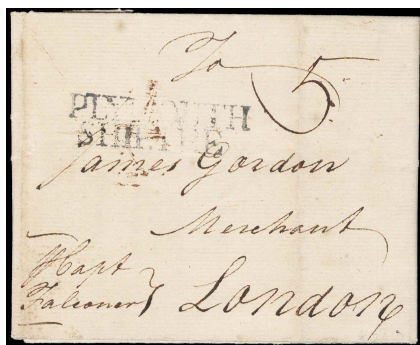 To
5
PLYMOUTH
SHIP LRE
James Gordon
Merchant
London
Capt
Falconer